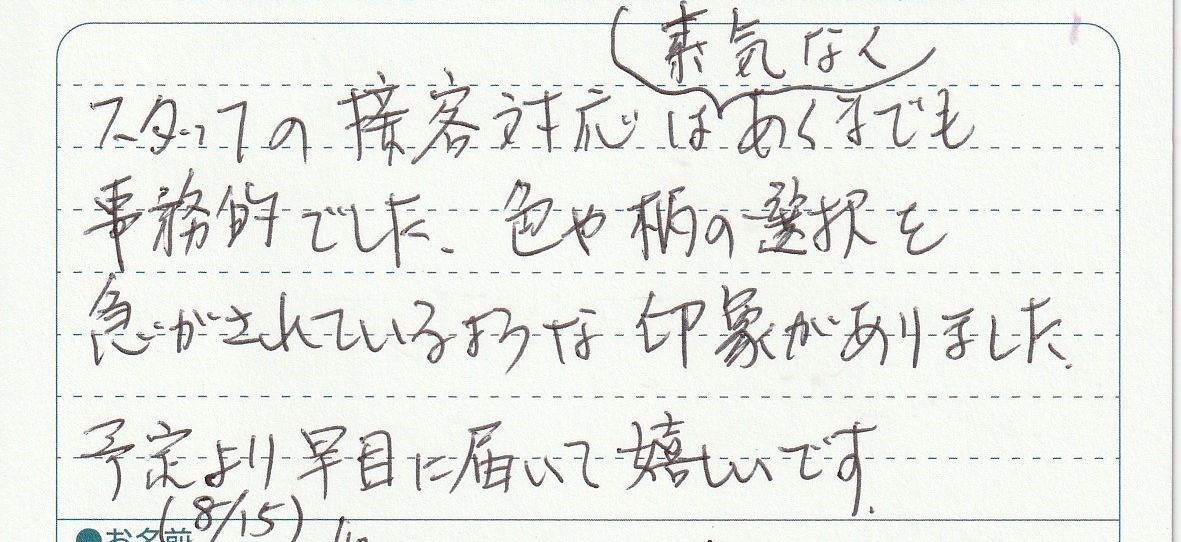 素気なく
スタッフの接客対応はあくまでも
事務的でした。色や柄の選択を
急がされているような印象がありました。
予定より早目に届いて嬉しいです。
(8/15)
●お名前